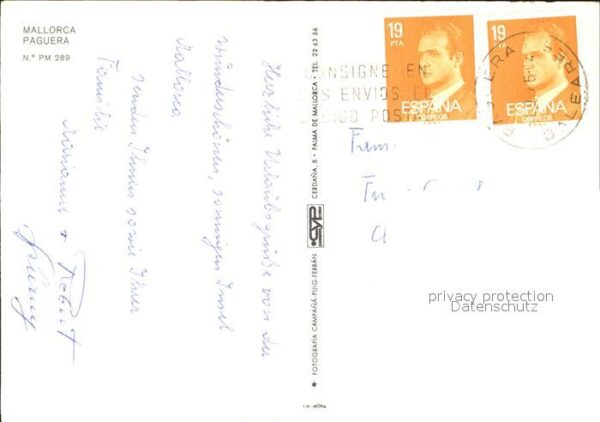 MALLORCA
PAGUERA
N.º PM 289
Herzliche Urlaubsgrüße von der
wunderschönen, sonnigen Insel
Mallorca
senden Ihnen sowie Ihrer
Familie
Marianne + Robert
FOTOGRAFIA CAMPAÑÁ-PUIG-FERRÁN
CYP
CERDAÑA, 8 - PALMA DE MALLORCA - TEL. 22 63 56
19
PTA
ESPAÑA
CORREOS
19
PTA
ESPAÑA
CORREOS
CONSIGNE EN
SUS ENVIOS EL
CODIGO POSTAL
PAGUERA
BALEARES
Fam.
privacy protection
Datenschutz